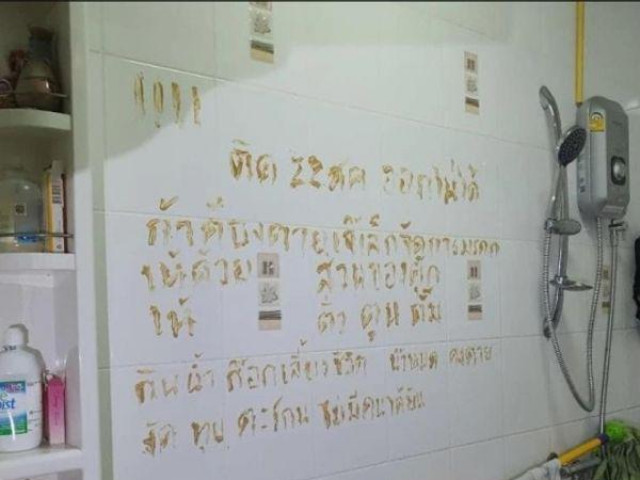 ติด 22 สค ออกไม่ได้
ถ้าต้องตายเจ๊เล็กจัดการมรดก
ให้ด้วย ส่วนของตุ๊ก
ให้ ติ๋ว ตูน ตั้ม
กินน้ำ ก๊อกเลี้ยงชีวิต น้ำหมด คงตาย
งัด ทุบ ตะโกน ไม่มีคนได้ยิน